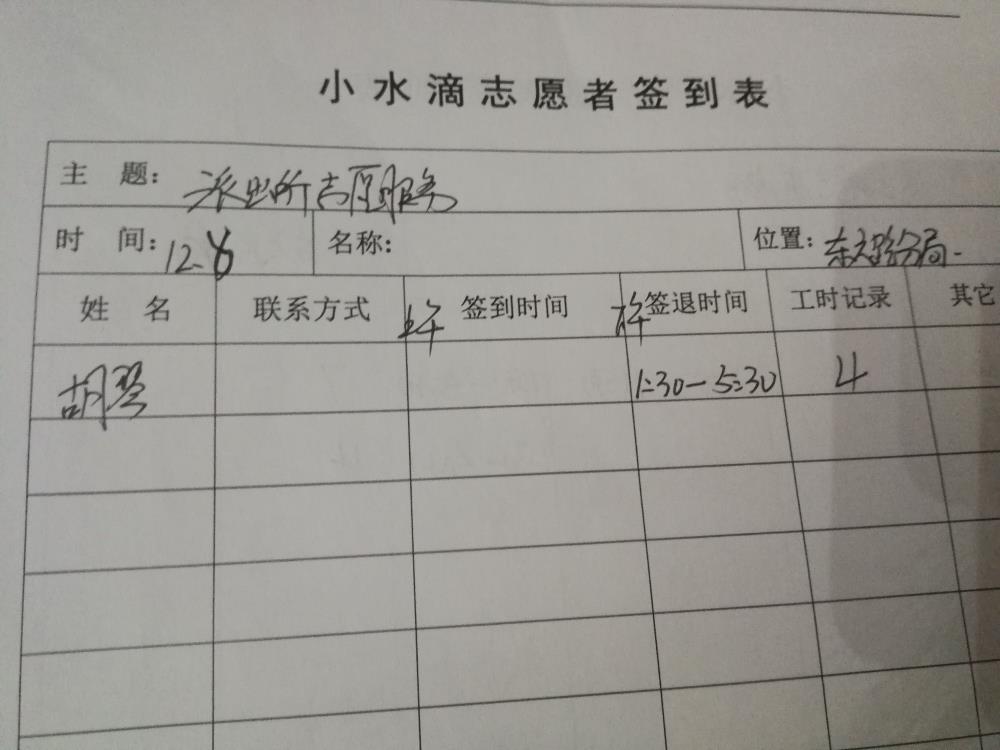 小水滴志愿者签到表
主 题: 派出所志愿服务
时 间: 12.8 名称: 位置: 东方路分局.
姓 名 联系方式 上午 签到时间 下午 签退时间 工时记录 其它
胡琴 1:30-5:30 4